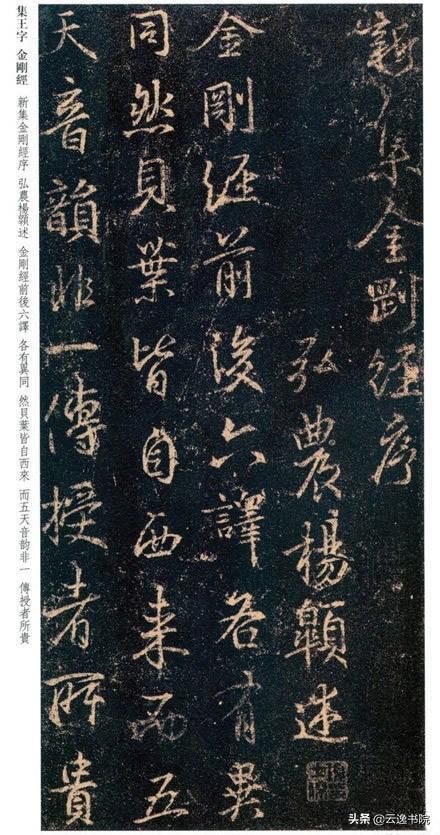 新集金剛經序
弘農楊顗述
金剛經前後六譯各有異
同然貝葉皆自西來而五
天音韻非一傳授者所貴
集王字 金剛經 新集金剛經序 弘農楊顗述 金剛經前後六譯 各有異同 然貝葉皆自西來 而五天音韵非一 傳授者所貴
头条 @云逸书院